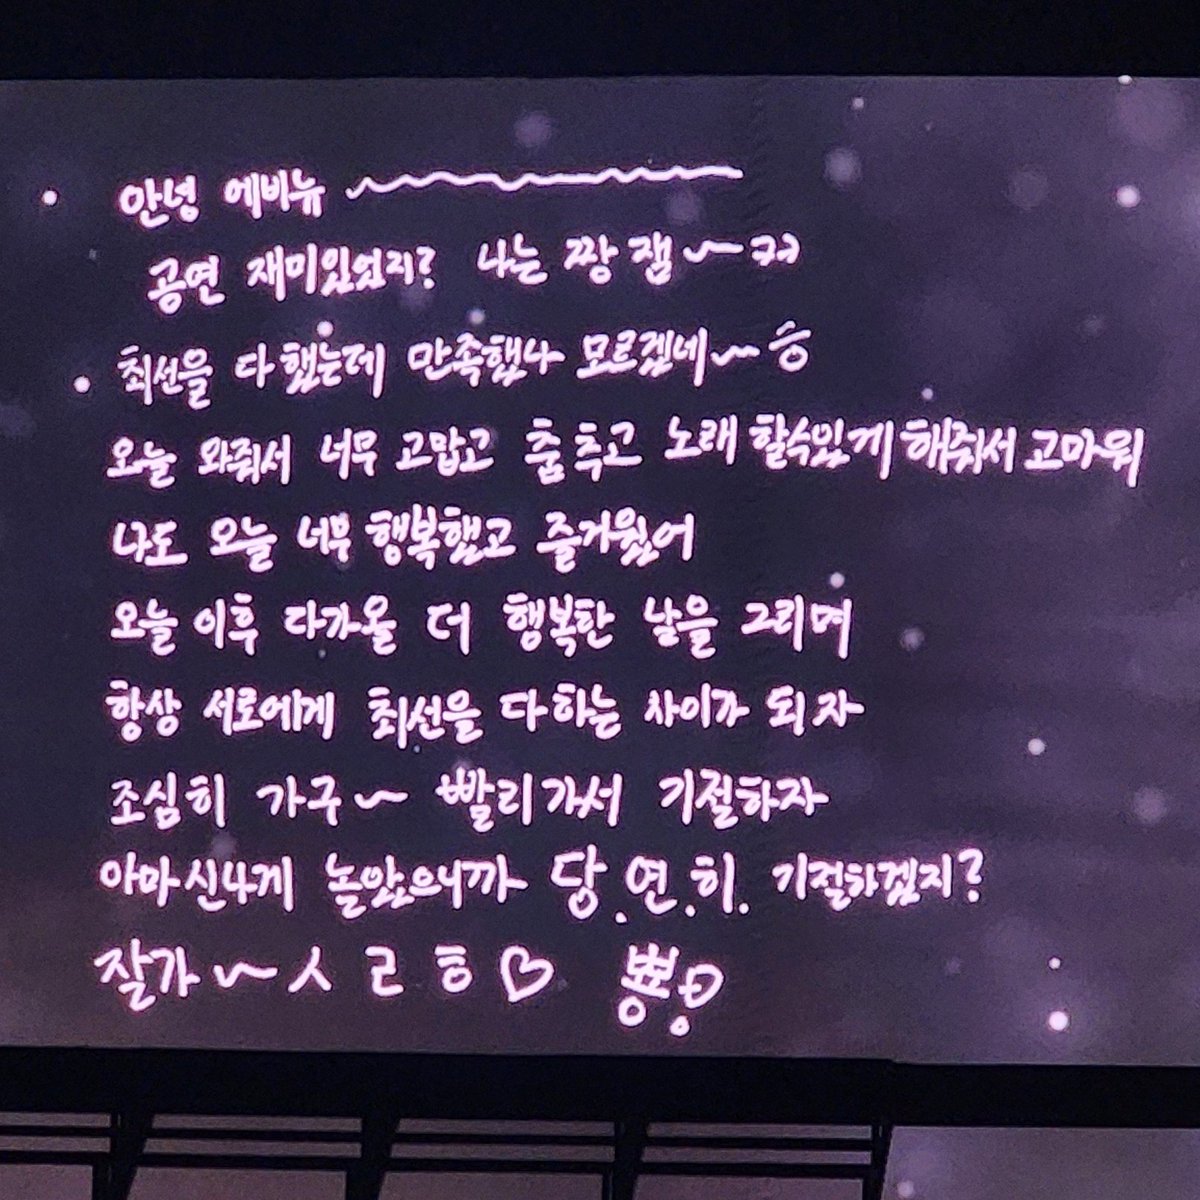 안녕 에비뉴~
공연 재미있었지? 나는 짱 잼~ㅋㅋ
최선을 다했는데 만족했나 모르겠네~ 승
오늘 와줘서 너무 고맙고 춤추고 노래할수있게 해줘서 고마워
나도 오늘 너무 행복했고 즐거웠어
오늘 이후 다가올 더 행복한 날을 그리며
항상 서로에게 최선을 다하는 사이가 되자
조심히 가구~ 빨리가서 기절하자
아마 신나게 놀았으니까 당.연.히. 기절하겠지?
잘가~ ㅅㄹㅎ♡ 뿅